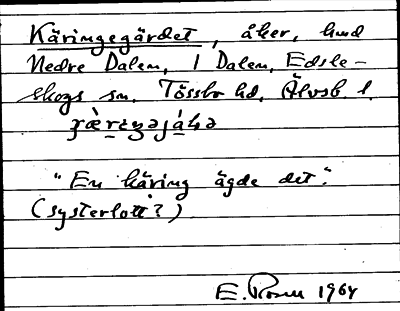 Käringegärdet, åker, hmd
Nedre Dalen, 1 Dalen, Edsle-
skogs sn. Tössbo hd, Älvsb l.
"En käring ägde det".
(systerlott?)
E. Rosen 1964